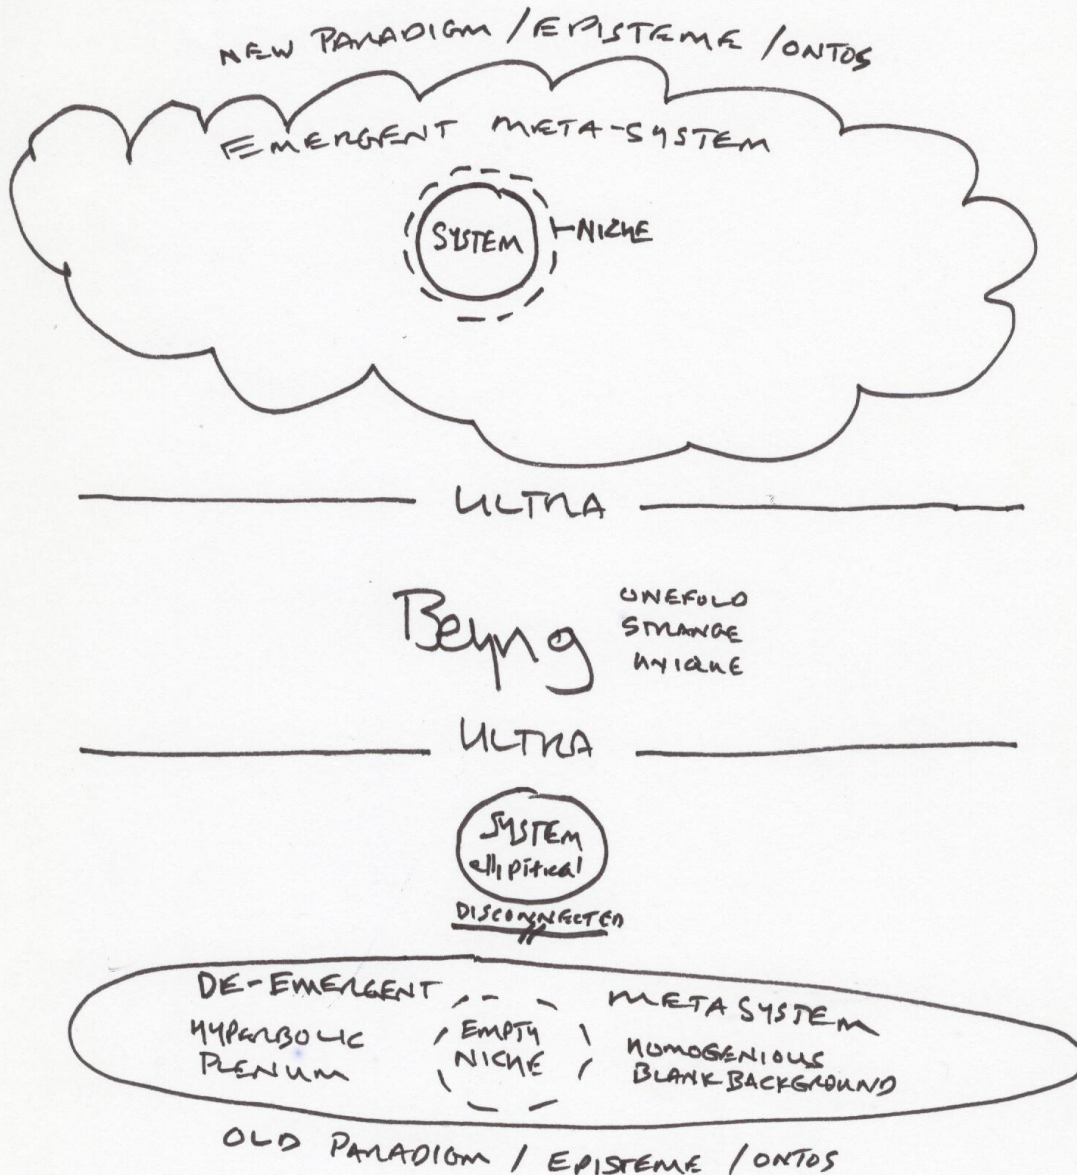 NEW PARADIGM / EPISTEME / ONTOS
EMERGENT META-SYSTEM
SYSTEM
NICHE
ULTRA
Beyng
ONEFOLD
STRANGE
UNIQUE
ULTRA
SYSTEM
ellipitical
DISCONNECTED
DE-EMERGENT
METASYSTEM
HYPERBOLIC
PLENUM
EMPTY
NICHE
HOMOGENIOUS
BLANK BACKGROUND
OLD PARADIGM / EPISTEME / ONTOS